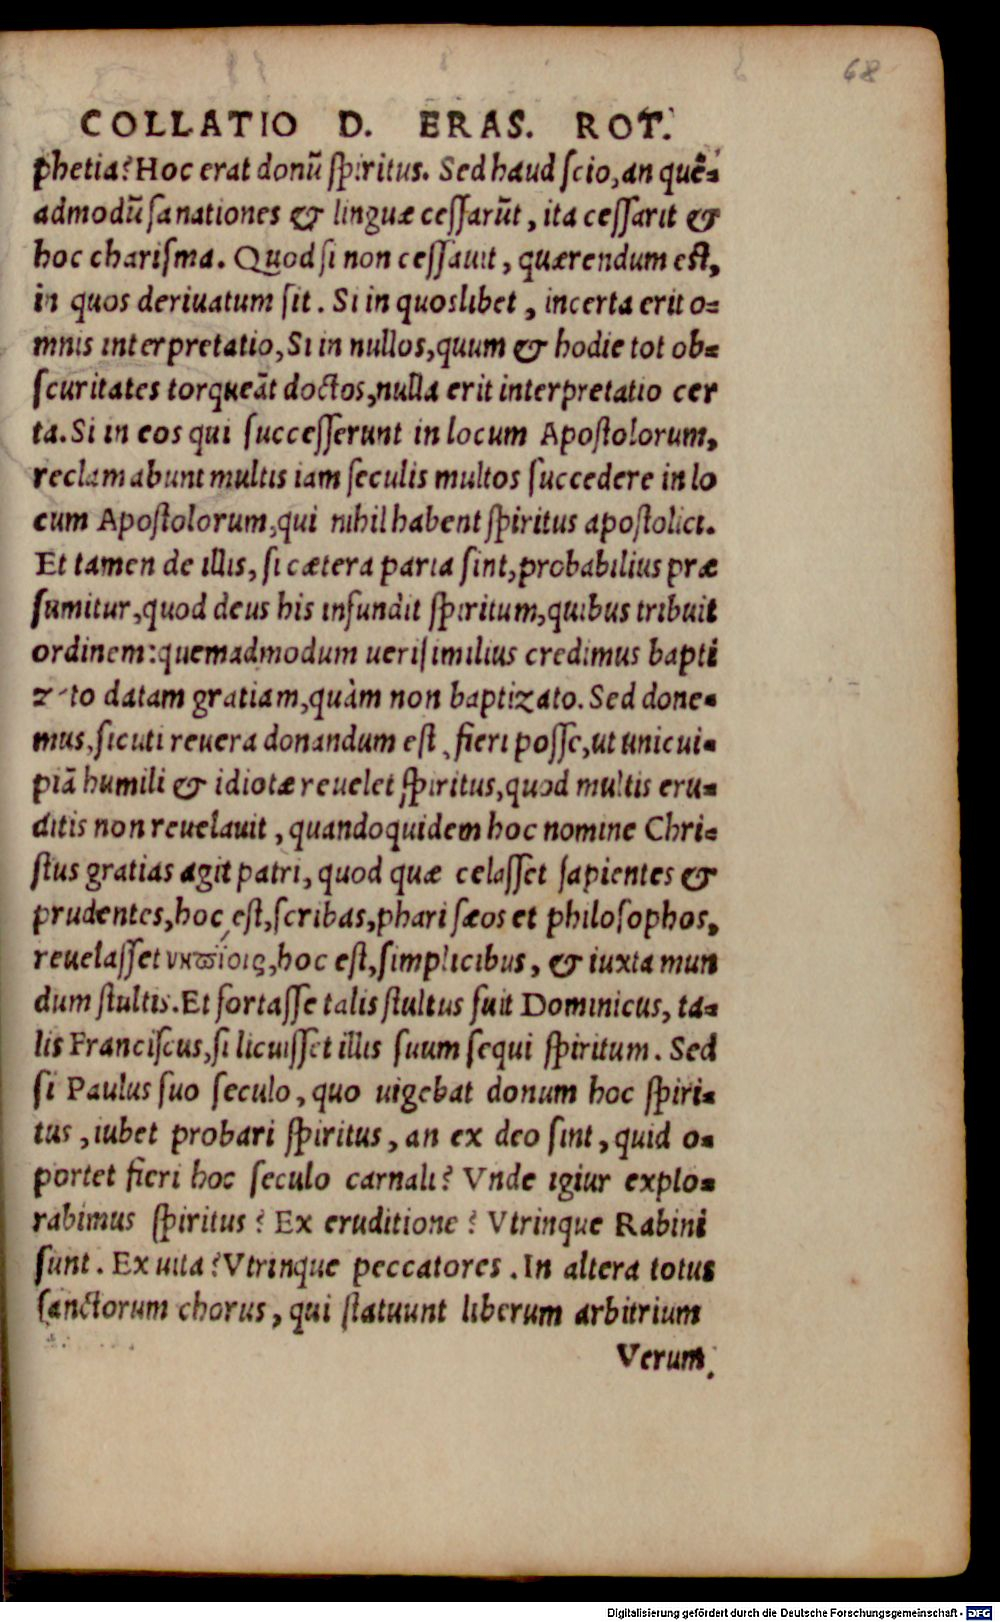 68
COLLATIO D. ERAS. ROT.
phetia? Hoc erat donũ spiritus. Sed haud scio, an quẽ-
admodũ sanationes & linguæ cessarũt, ita cessarit &
hoc charisma. Quod si non cessauit, quærendum est,
in quos deriuatum sit. Si in quoslibet, incerta erit o-
mnis interpretatio, Si in nullos, quum & hodie tot ob-
scuritates torqueãt doctos, nulla erit interpretatio cer
ta. Si in eos qui successerunt in locum Apostolorum,
reclamabunt multis iam seculis multos succedere in lo
cum Apostolorum, qui nihil habent spiritus apostolici.
Et tamen de illis, si cætera paria sint, probabilius præ
sumitur, quod deus his infundit spiritum, quibus tribuit
ordinem: quemadmodum uerisimilius credimus bapti
zato datam gratiam, quàm non baptizato. Sed done-
mus, sicuti reuera donandum est, fieri posse, ut unicui-
piã humili & idiotæ reuelet spiritus, quod multis eru-
ditis non reuelauit, quandoquidem hoc nomine Chri-
stus gratias agit patri, quod quæ celasset sapientes &
prudentes, hoc est, scribas, pharisæos et philosophos,
reuelasset νηπίοις, hoc est, simplicibus, & iuxta mun
dum stultis. Et fortasse talis stultus fuit Dominicus, ta-
lis Franciscus, si licuisset illis suum sequi spiritum. Sed
si Paulus suo seculo, quo uigebat donum hoc spiri-
tus, iubet probari spiritus, an ex deo sint, quid o-
portet fieri hoc seculo carnali? Vnde igiur explo-
rabimus spiritus? Ex eruditione? Vtrinque Rabini
sunt. Ex uita? Vtrinque peccatores. In altera totus
sanctorum chorus, qui statuunt liberum arbitrium
Verum,
Digitalisierung gefördert durch die Deutsche Forschungsgemeinschaft - DFG